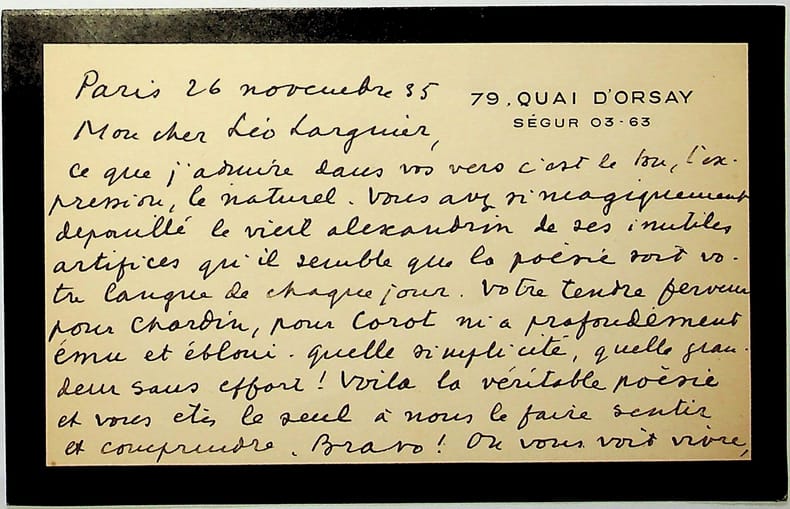 Paris 26 novembre 35
79, QUAI D'ORSAY
SÉGUR 03-63
Mon cher Léo Larguier,
ce que j'admire dans vos vers c'est le ton, l'ex-
pression, le naturel. Vous avez si magiquement
depouillé le vieil alexandrin de ses inutiles
artifices qu'il semble que la poésie soit vo-
tre langue de chaque jour. Votre tendre ferveur
pour Chardin, pour Corot m'a profondément
ému et ébloui. quelle simplicité, quelle gran-
deur sans effort ! Voilà la véritable poésie
et vous etes le seul à nous le faire sentir
et comprendre. Bravo ! On vous voit vivre,